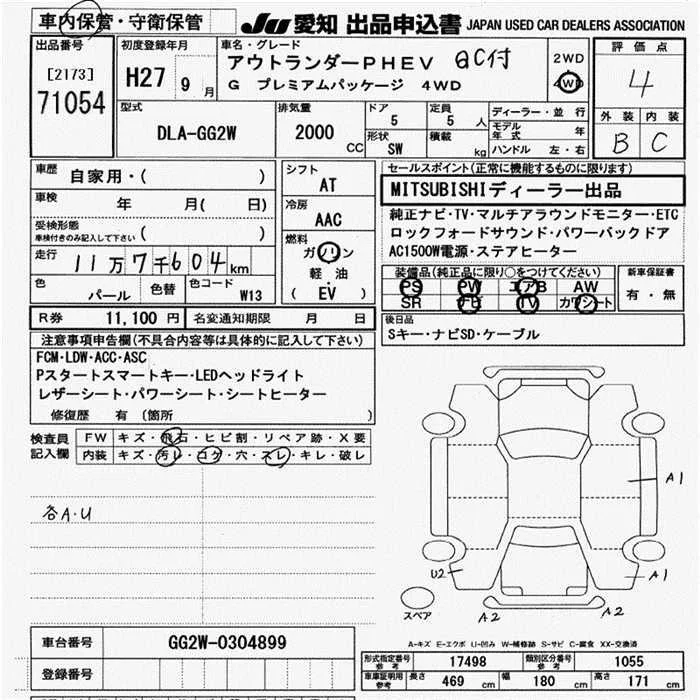 車内保管・守衛保管
JU 愛知 出品申込書 JAPAN USED CAR DEALERS ASSOCIATION
出品番号
[2173]
71054
初度登録年月
H27 9月
車名・グレード
アウトランダーPHEV QC付
G プレミアムパッケージ 4WD
2WD
4WD
評価点
4
外装 内装
B C
型式
DLA-GG2W
排気量
2000 CC
ドア
5
定員
5人
形状
SW
積載
kg
ディーラー・並行
モデル年式 年
ハンドル 左・右
車歴
自家用・( )
車検 年 月( 日)
受検形態
車検付きのみ記入して下さい ( )
走行 11万7千604km
色 パール 色替 色コード W13
シフト
AT
冷房
AAC
燃料
ガソリン
軽油
( EV )
セールスポイント(正常に機能するものに限ります)
MITSUBISHIディーラー出品
純正ナビ・TV・マルチアラウンドモニター・ETC
ロックフォードサウンド・パワーバックドア
AC1500W電源・ステアヒーター
装備品(純正品に限り○をつけてください)
PS PW エアB AW
SR ナビ TV カワシート
新車保証書
有・無
R券 11,100円 名変通知期限 月 日
後日品
Sキー・ナビSD・ケーブル
注意事項申告欄(不具合内容等は具体的に記入して下さい)
FCM・LDW・ACC・ASC
Pスタートスマートキー・LEDヘッドライト
レザーシート・パワーシート・シートヒーター
修復歴 有 (箇所 )
検査員記入欄
FW キズ・飛石・ヒビ割・リペア跡・X要
内装 キズ・汚レ・コゲ・穴・スレ・キレ・破レ
各A・U
A1
U2
A1
スペア
A2
A2
A-キズ E-エクボ U-凹み W-補修跡 S-サビ C-腐食 XX-交換済
車台番号 GG2W-0304899
登録番号
形式指定番号 参考 17498 類別区分番号 参考 1055
車庫証明用 参考 長さ 469 cm 幅 180 cm 高さ 171 cm